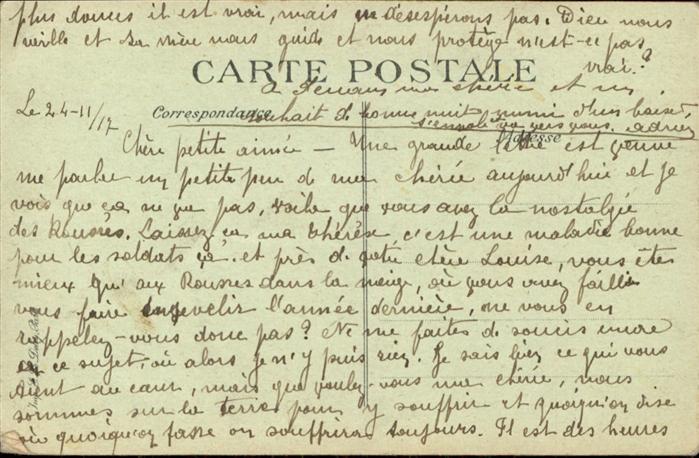 plus douces il est vrai, mais ne désespérons pas. Dieu nous
veille et sa mère nous guide et nous protège n'est-ce pas
vrai?
CARTE POSTALE
à demain ma chère et un
Le 24-11/17
Correspondance
souhait de bonne nuit muni d'un baiser
s'envole vers vous. adrien
Adresse
Chère petite aimée — Une grande lettre est venue
me parler un petit peu de ma chérie aujourd'hui et je
vois que ça ne va pas, voilà que vous avez la nostalgie
des Rousses. Laissez ça ma thérèse c'est une maladie bonne
pour les soldats ça. et près de votre chère Louise, vous êtes
mieux qu'aux Rousses dans la neige, où vous avez failli
vous faire ensevelir l'année dernière, ne vous en
rappelez-vous donc pas? Ne me faites de soucis encore
à ce sujet, où alors je n'y puis rien. Je sais bien ce qui vous
tient au cœur, mais que voulez-vous ma chérie, nous
sommes sur la terre pour y souffrir et quoiqu'on dise
où quoiqu'on fasse on souffrira toujours. Il est des heures